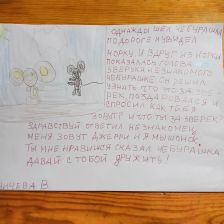 ОДНАЖДЫ ШЁЛ ЧЕБУРАШКА
ПО ДОРОГЕ И УВИДЕЛ
НОРКУ И ВДРУГ ИЗ НОРКИ
ПОКАЗАЛАСЬ ГОЛОВА
ЗВЕРЬКА НЕЗНАКОМОГО
ЧЕБУРАШКЕ ОН РЕШИЛ
УЗНАТЬ ЧТО ЭТО ЗА ЗВЕ
РЕК, ПОЗДАРОВАЛСЯ И
СПРОСИЛ КАК ТЕБЯ
ЗОВУТ? И ЧТО ТЫ ЗА ЗВЕРЕК?
ЗДРАВСТВУЙ ОТВЕТИЛ НЕЗНАКОМЕЦ,
МЕНЯ ЗОВУТ ДЖЕРРИ И Я МЫШОНОК.
ТЫ МНЕ НРАВИШСЯ СКАЗАЛ ЧЕБУРАШКА
ДАВАЙ С ТОБОЙ ДРУЖИТЬ!
В.